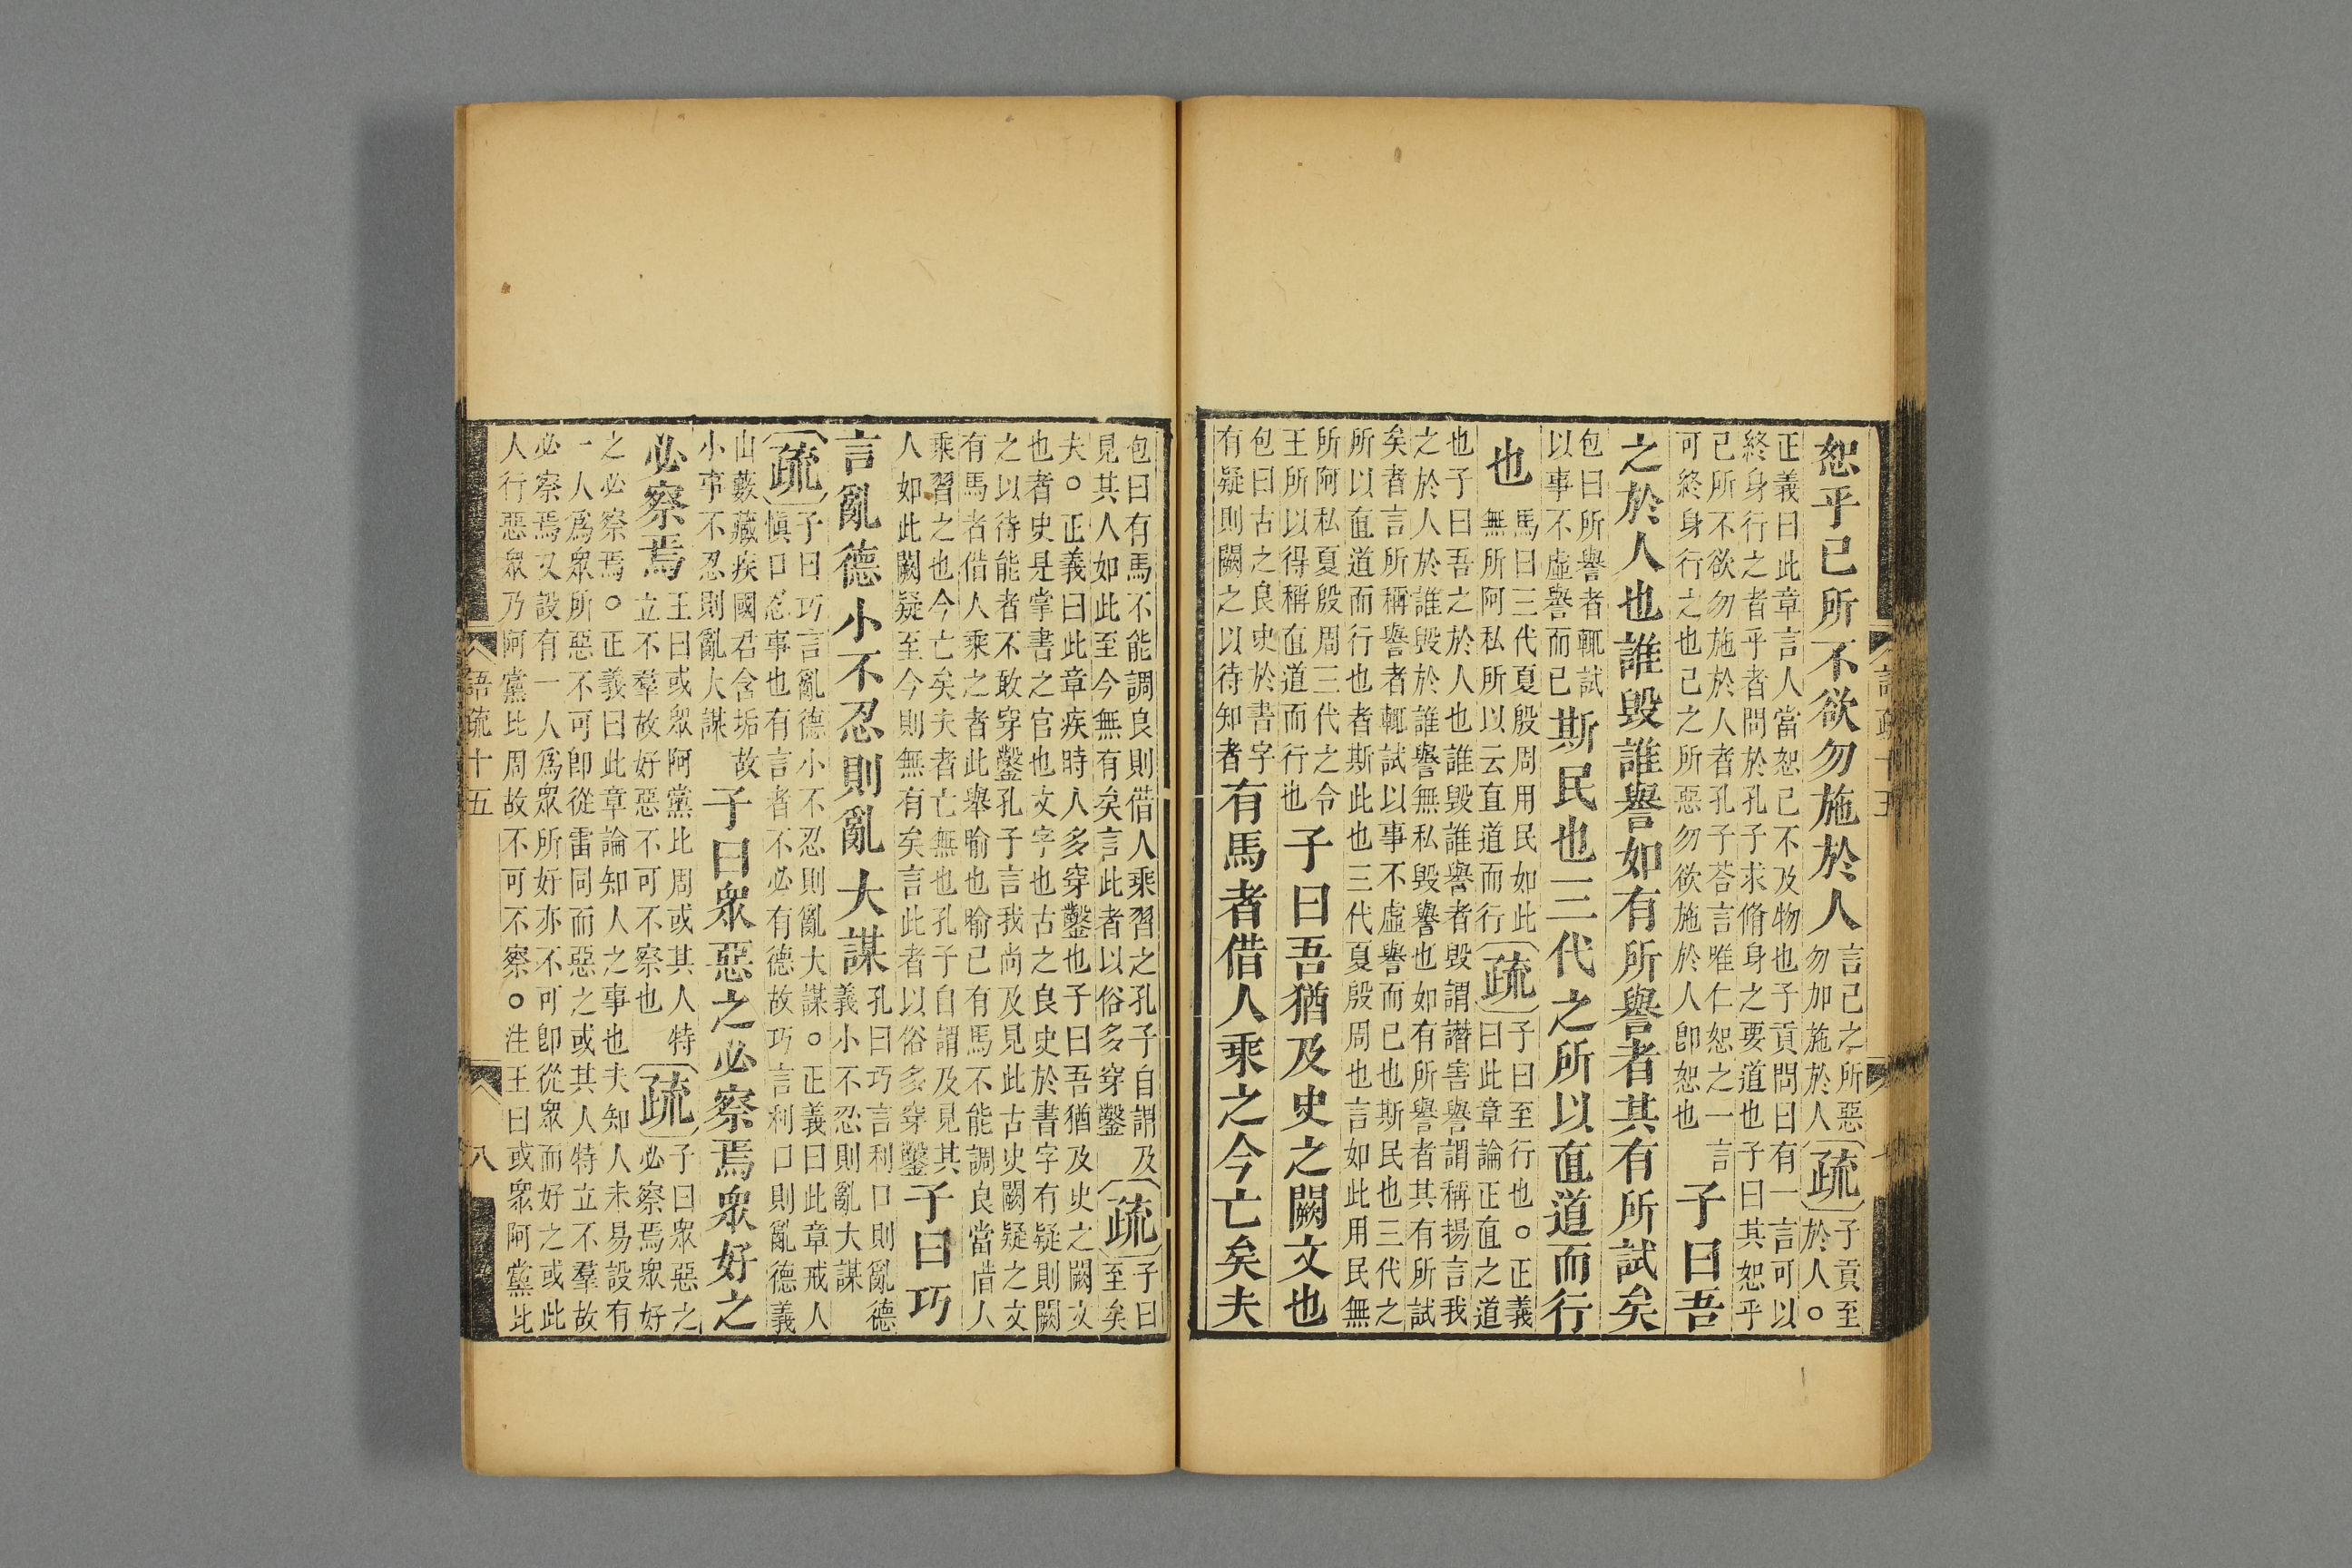 恕乎己所不欲勿施於人言己之所惡勿加施於人疏子貢至於人○
正義曰此章言人當恕己不及物也子貢問曰有一言可以
終身行之者乎者問於孔子求脩身之要道也子曰其恕乎
己所不欲勿施於人者孔子荅言唯仁恕之一言
可終身行之也己之所惡勿欲施於人卽恕也子曰吾
之於人也誰毀誰譽如有所譽者其有所試矣
包曰所譽者輒試以事不虛譽而已斯民也三代之所以直道而行
也馬曰三代夏殷周用民如此無所阿私所以云直道而行疏子曰至行也○正義曰此章論正直之道
也子曰吾之於人也誰毀誰譽者毀謂譖害譽謂稱揚言我
之於人於誰毀於誰譽無私毀譽也如有所譽者其有所試
矣者言所稱譽者輒試以事不虛譽而已也斯民也三代之
所以直道而行也者斯此也三代夏殷周也言如此用民無
所阿私夏殷周三代之令王所以得稱直道而行也子曰吾猶及史之闕文也
包曰古之良史於書字有疑則闕之以待知者有馬者借人乘之今亡矣夫
包曰有馬不能調良則借人乘習之孔子自謂及
見其人如此至今無有矣言此者以俗多穿鑿疏子曰至矣
夫○正義曰此章疾時人多穿鑿也子曰吾猶及史之闕文
也者史是掌書之官也文字也古之良史於書字有疑則闕
之以待能者不敢穿鑿孔子言我尚及見此古史闕疑之文
有馬者借人乘之者此舉喻也喻己有馬不能調良當借人
乘習之也今亡矣夫者亡無也孔子自謂及見其
人如此闕疑至今則無有矣言此者以俗多穿鑿子曰巧
言亂德小不忍則亂大謀孔曰巧言利口則亂德義小不忍則亂大謀
疏子曰巧言亂德小不忍則亂大謀○正義曰此章戒人慎口忍事也有言者不必有德故巧言利口則亂德義
山藪藏疾國君含垢故小事不忍則亂大謀子曰眾惡之必察焉眾好之
必察焉王曰或眾阿黨比周或其人特立不羣故好惡不可不察也疏子曰眾惡之必察焉眾好
之必察焉○正義曰此章論知人之事也夫知人未易設有
一人爲眾所惡不可卽從雷同而惡之或其人特立不羣故
必察焉又設有一人爲眾所好亦不可卽從眾而好之或此
人行惡眾乃阿黨比周故不可不察○注王曰或眾阿黨比
語疏十五
八